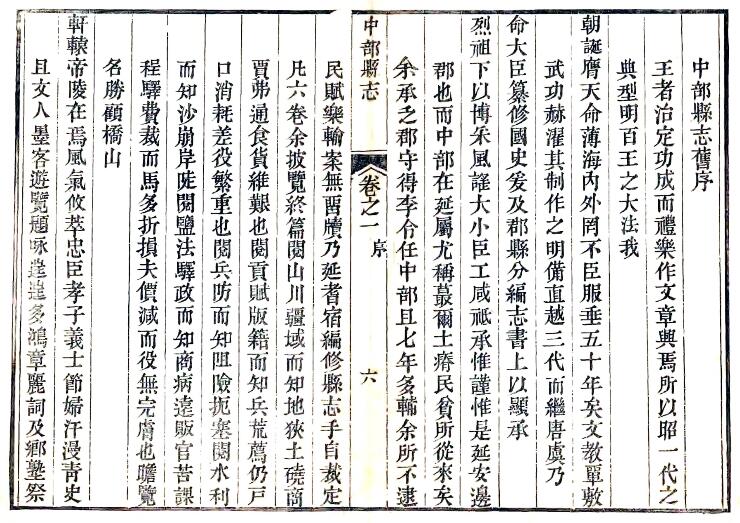 中部縣志舊序
王者治定功成而禮樂作文章興焉所以昭一代之
典型明百王之大法我
朝誕膺天命薄海內外罔不臣服垂五十年矣文教單敷
武功赫濯其制作之明備直越三代而繼唐虞乃
命大臣纂修國史爰及郡縣分編志書上以顯承
烈祖下以博采風謠大小臣工咸祗承惟謹惟是延安邊
郡也而中部在延屬尤稱蕞爾土瘠民貧所從來矣
余承乏郡守得李令任中部且七年多輔余所不逮
中部縣志
卷之一
序
六
民賦樂輸案無畱牘乃延耆宿編修縣志手自裁定
凡六卷余披覽終篇閱山川疆域而知地狹土磽商
賈弗通食貨維艱也閱貢賦版籍而知兵荒薦仍戸
口消耗差役繁重也閱兵防而知阻險扼塞閱水利
而知沙崩岸陡閱鹽法驛政而知商病遠販官苦課
程驛費裁而馬多折損夫價減而役無完膚也瞻覽
名勝顧橋山
軒轅帝陵在焉風氣攸萃忠臣孝子義士節婦汗漫靑史
且文人墨客遊覽題咏逹逹多鴻章麗詞及鄉塾祭